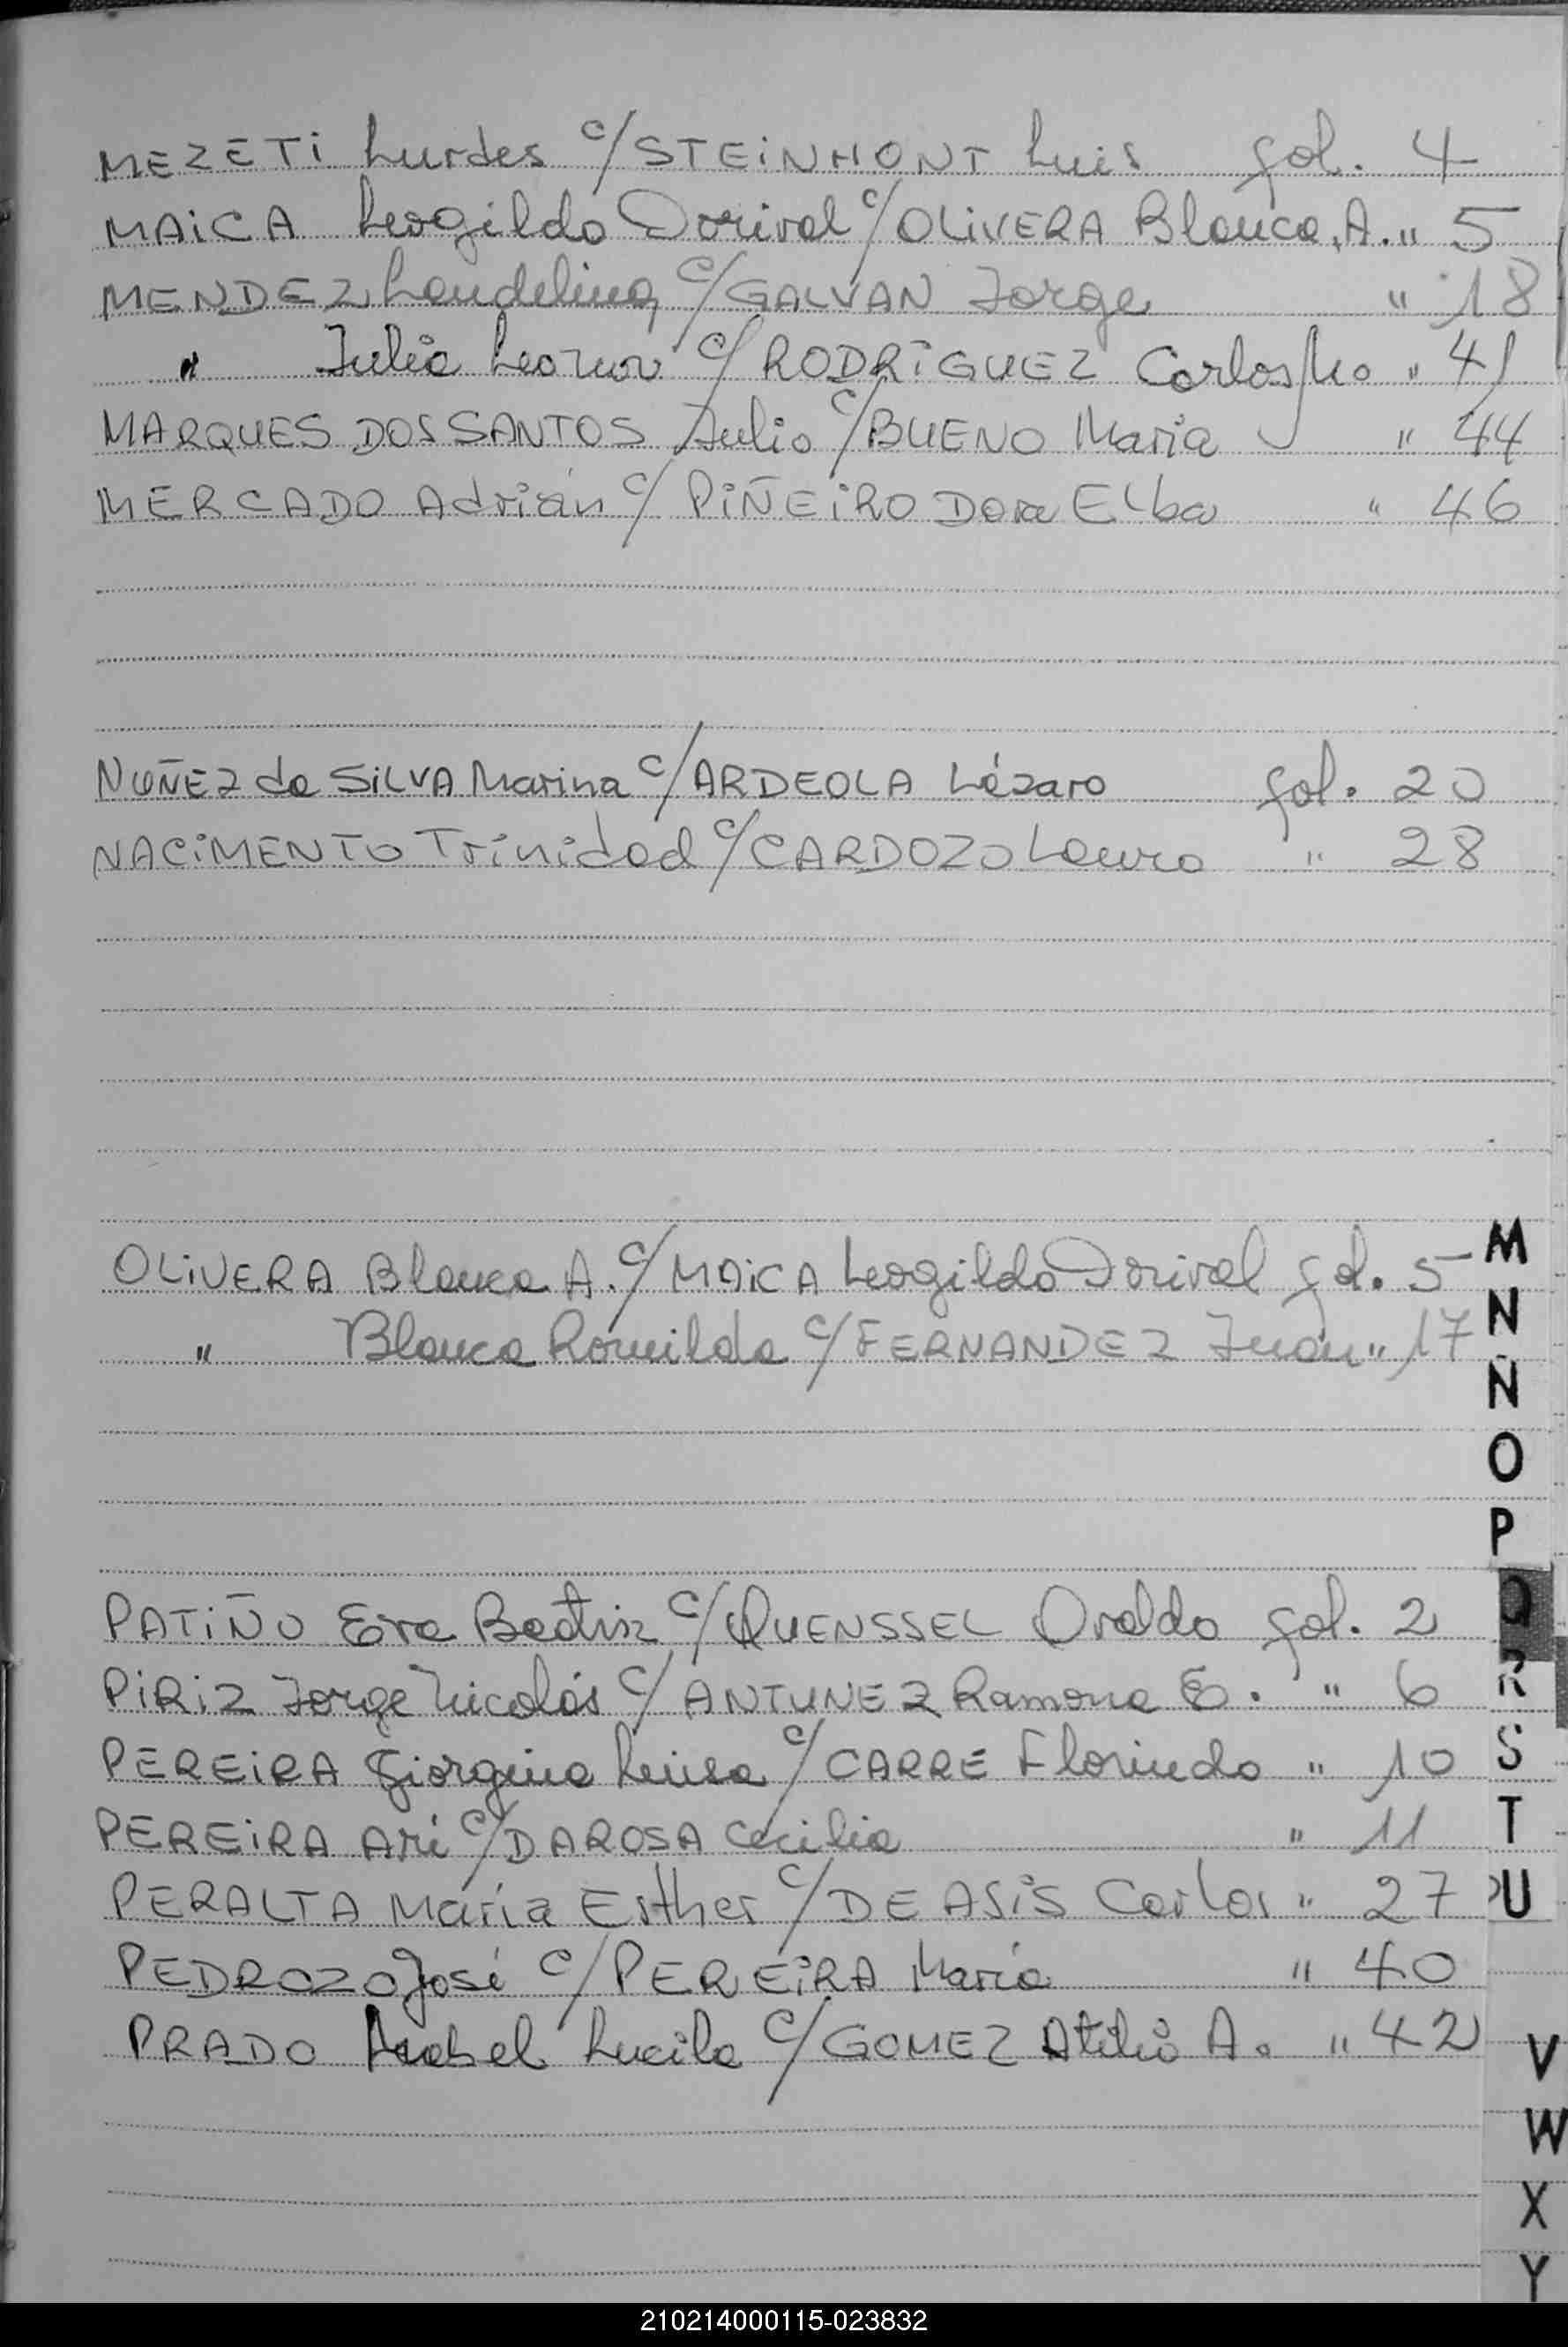 MEZETi Lurdes c/ STEiNMONT Luis fol. 4
MAiCA Leogildo Dorival c/ OLiVERA Blanca A. " 5
MENDEZ Laudelina c/ GALVAN Jorge " 18
" Julia Leonor c/ RODRiGUEZ Carlos Mo " 41
MARQUES DOS SANTOS Julio c/ BUENO Maria " 44
MERCADO Adrián c/ PiÑEiRO Dora Elba " 46
NUÑEZ da SiLVA Marina c/ ARDEOLA Lázaro fol. 20
NACiMENTO Trinidad c/ CARDOZO Lauro " 28
OLiVERA Blanca A. c/ MAiCA Leogildo Dorival fol. 5
" Blanca Romilda c/ FERNANDEZ Juan " 17
PATiÑO Eva Beatriz c/ QUENSSEL Ovaldo fol. 2
PiRiZ Jorge Nicolás c/ ANTUNEZ Ramona E. " 6
PEREiRA Giorgina Luisa c/ CARRE Florindo " 10
PEREiRA Ari c/ DAROSA Cecilia " 11
PERALTA María Esther c/ DE ASiS Carlos " 27
PEDROZO José c/ PEREiRA María " 40
PRADO Isabel Lucila c/ GOMEZ Atilio A. " 42
M
N
Ñ
O
P
Q
R
S
T
U
V
W
X
Y
210214000115-023832